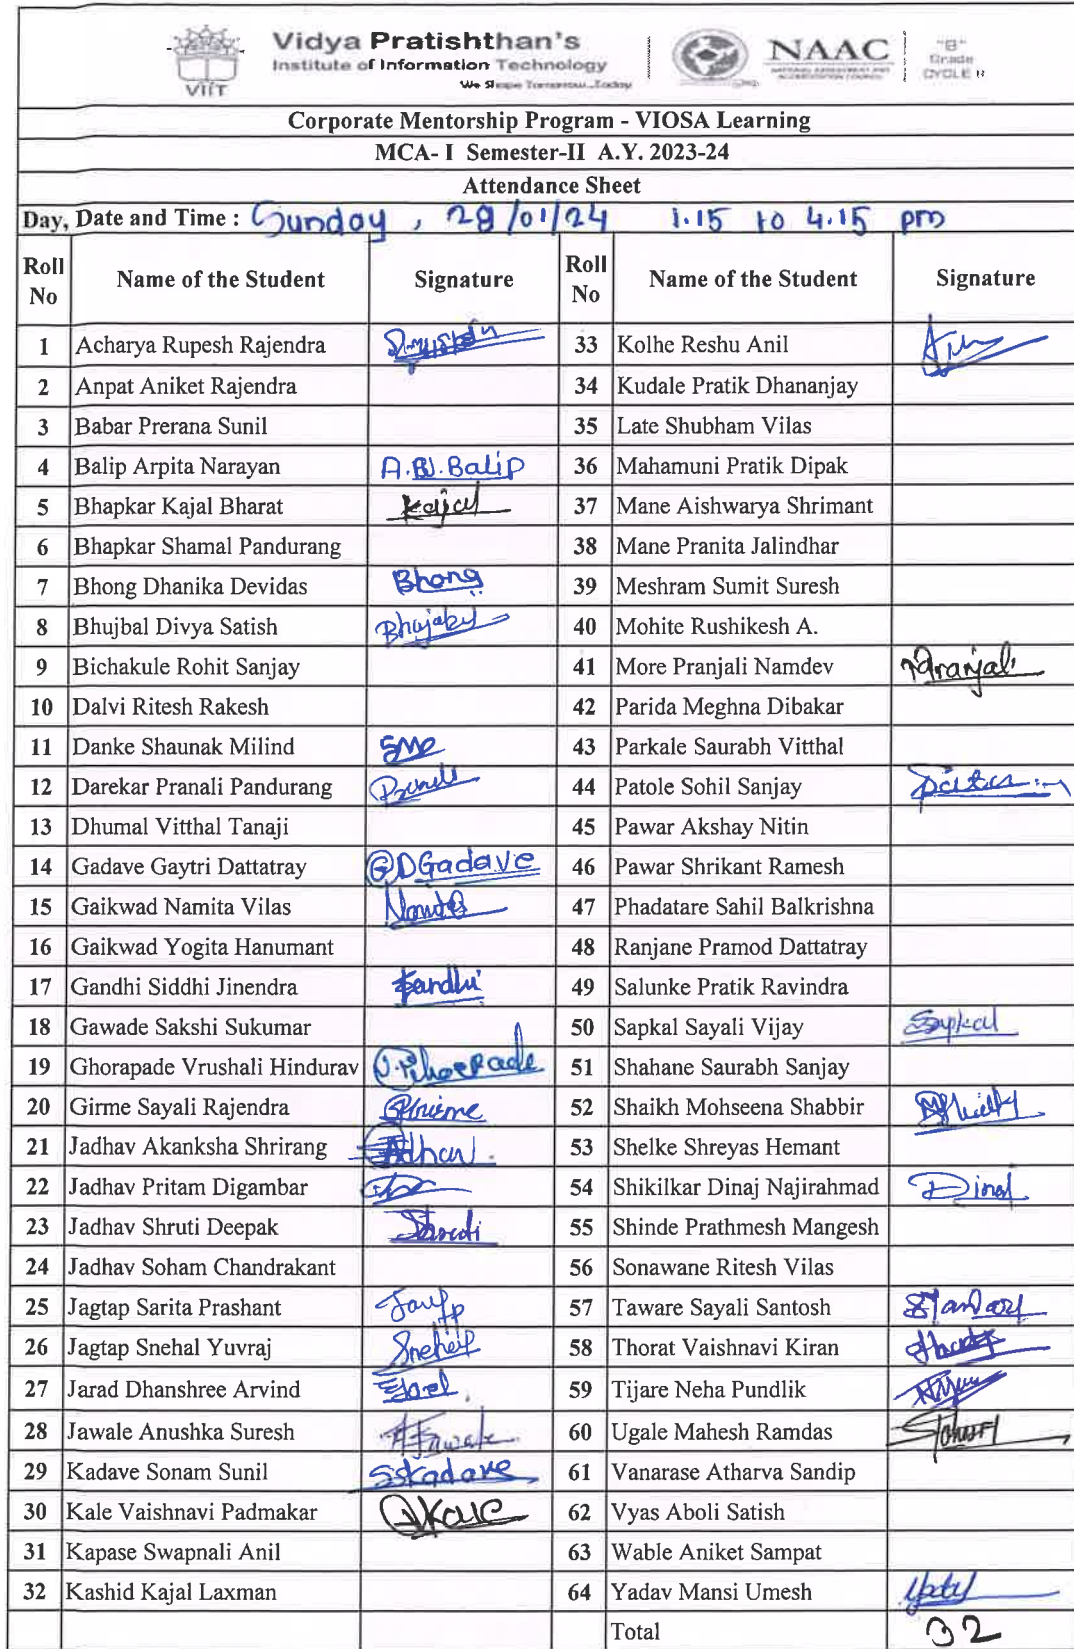 VIIT
Vidya Pratishthan's
Institute of Information Technology
We Shape Tomorrow...Today
NAAC
NATIONAL ASSESSMENT AND
ACCREDITATION COUNCIL
"B"
Grade
CYCLE II
Corporate Mentorship Program - VIOSA Learning
MCA- I Semester-II A.Y. 2023-24
Attendance Sheet
Day, Date and Time : Sunday , 28/01/24 1.15 to 4.15 pm
Roll No Name of the Student Signature Roll No Name of the Student Signature
1 Acharya Rupesh Rajendra 33 Kolhe Reshu Anil
2 Anpat Aniket Rajendra 34 Kudale Pratik Dhananjay
3 Babar Prerana Sunil 35 Late Shubham Vilas
4 Balip Arpita Narayan A.N.Balip 36 Mahamuni Pratik Dipak
5 Bhapkar Kajal Bharat Kajal 37 Mane Aishwarya Shrimant
6 Bhapkar Shamal Pandurang 38 Mane Pranita Jalindhar
7 Bhong Dhanika Devidas Bhong 39 Meshram Sumit Suresh
8 Bhujbal Divya Satish 40 Mohite Rushikesh A.
9 Bichakule Rohit Sanjay 41 More Pranjali Namdev Pranjali
10 Dalvi Ritesh Rakesh 42 Parida Meghna Dibakar
11 Danke Shaunak Milind SMD 43 Parkale Saurabh Vitthal
12 Darekar Pranali Pandurang 44 Patole Sohil Sanjay
13 Dhumal Vitthal Tanaji 45 Pawar Akshay Nitin
14 Gadave Gaytri Dattatray GDGadave 46 Pawar Shrikant Ramesh
15 Gaikwad Namita Vilas 47 Phadatare Sahil Balkrishna
16 Gaikwad Yogita Hanumant 48 Ranjane Pramod Dattatray
17 Gandhi Siddhi Jinendra Gandhi 49 Salunke Pratik Ravindra
18 Gawade Sakshi Sukumar 50 Sapkal Sayali Vijay Sapkal
19 Ghorapade Vrushali Hindurav 51 Shahane Saurabh Sanjay
20 Girme Sayali Rajendra 52 Shaikh Mohseena Shabbir
21 Jadhav Akanksha Shrirang 53 Shelke Shreyas Hemant
22 Jadhav Pritam Digambar 54 Shikilkar Dinaj Najirahmad Dinaj
23 Jadhav Shruti Deepak 55 Shinde Prathmesh Mangesh
24 Jadhav Soham Chandrakant 56 Sonawane Ritesh Vilas
25 Jagtap Sarita Prashant 57 Taware Sayali Santosh
26 Jagtap Snehal Yuvraj 58 Thorat Vaishnavi Kiran
27 Jarad Dhanshree Arvind 59 Tijare Neha Pundlik
28 Jawale Anushka Suresh 60 Ugale Mahesh Ramdas
29 Kadave Sonam Sunil SSKadave 61 Vanarase Atharva Sandip
30 Kale Vaishnavi Padmakar 62 Vyas Aboli Satish
31 Kapase Swapnali Anil 63 Wable Aniket Sampat
32 Kashid Kajal Laxman 64 Yadav Mansi Umesh
Total 32